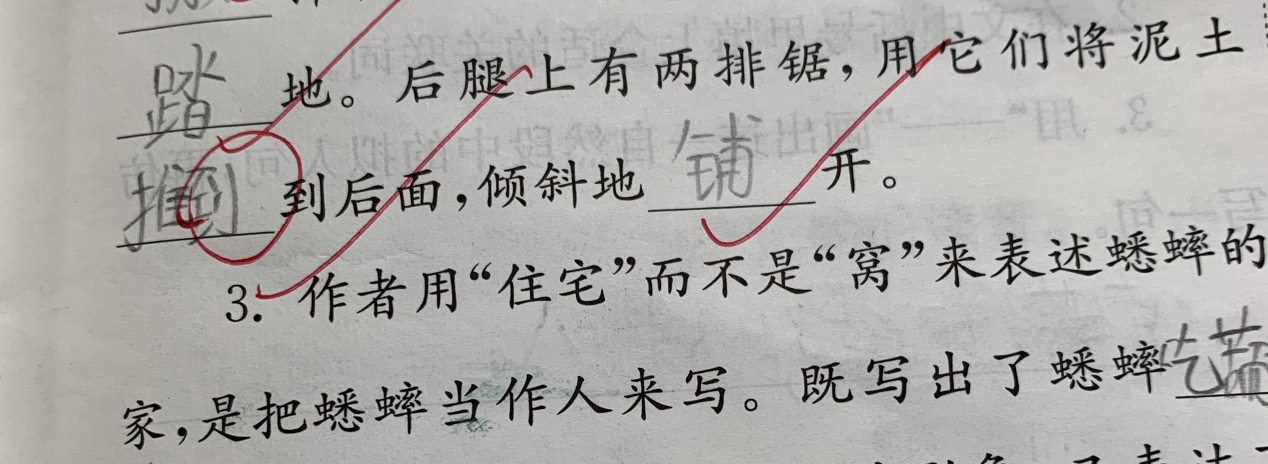 踏地。后腿上有两排锯，用它们将泥土
推到到后面，倾斜地铺开。
3. 作者用“住宅”而不是“窝”来表述蟋蟀的
家，是把蟋蟀当作人来写。既写出了蟋蟀吃苦